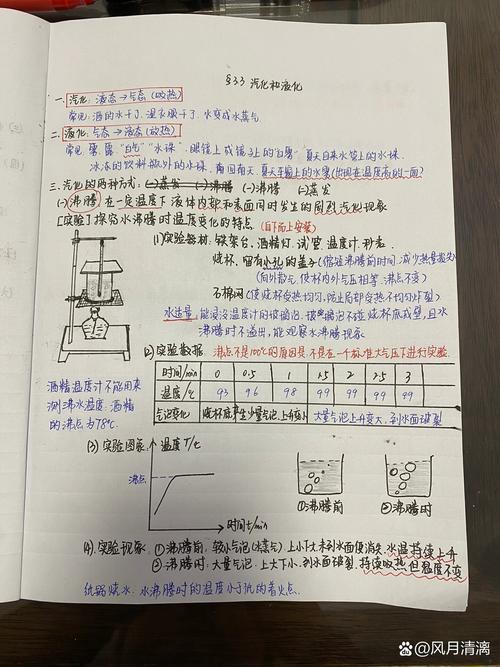 §3.3 汽化和液化
一. 汽化: 液态→气态 (吸热)
常见: 洒的水干了, 湿衣服干了, 水变成水蒸气
二. 液化: 气态→液态 (放热)
常见: 雾、露 "白气" "水珠". 眼镜上或镜子上的"白雾". 夏天自来水管上的水珠.
冰冻的饮料瓶外的水珠.
三. 汽化的两种方式: (一)蒸发 (二)沸腾 (一)沸腾 (二)蒸发
(一) 沸腾: 在一定温度下液体内部和表面同时发生的剧烈汽化现象
[实验] 探究水沸腾时温度变化的特点 (自下而上安装)
(1) 实验器材: 铁架台. 酒精灯. 试管. 温度计. 秒表.
烧杯、留有小孔的盖子 (缩短沸腾前时间, 减少热量散失)
(向外散气, 使杯内外气压相等, 沸点不变)
石棉网 (使烧杯受热均匀, 防止局部受热不均匀炸裂)
水适量, 能浸没温度计的玻璃泡, 玻璃泡不碰烧杯底或壁, 且水
沸腾时不溢出, 能观察水沸腾现象.
酒精温度计不能用来
测沸水温度. 酒精
的沸点为78℃.
(2) 实验数据. 沸点不是100℃的原因是: 不是在一个标准大气压下进行实验.
时间/min 0 0.5 1 1.5 2 2.5 3
温度/℃ 93 96 98 99 99 99 99
气泡变化 烧杯底产生少量气泡, 上升变小 大量气泡上升变大, 到水面破裂
(3) 实验图象: 温度 T/℃
沸点
时间 t/min
①沸腾前 ②沸腾时
(4) 实验现象: ①沸腾前, 较小气泡 (水蒸气) 上小下大未到水面便消失. 水温持续上升
②沸腾时: 大量气泡. 上大下小. 到水面破裂. 持续吸热但温度不变
纸锅烧水: 水沸腾时的温度小于纸的着火点.
@风月清漓